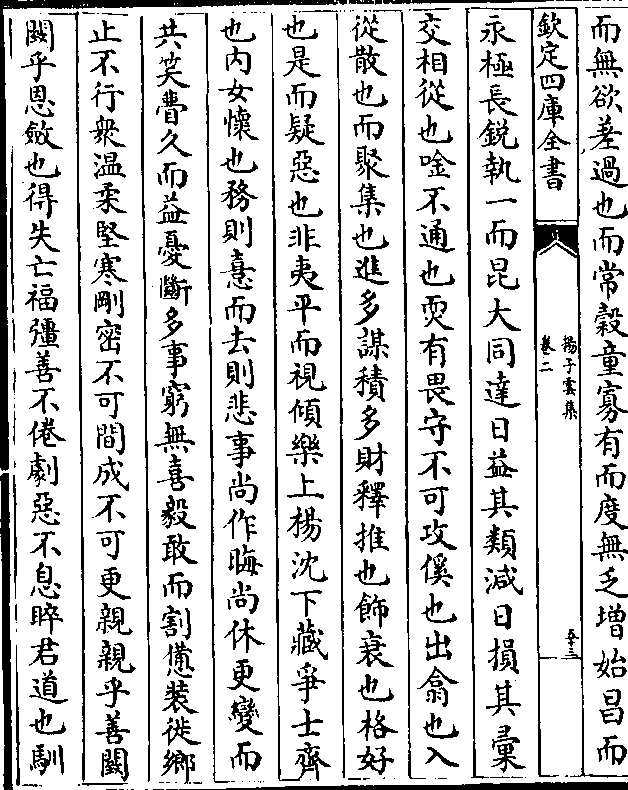 而無欲差過也而常穀童寡有而度無乏增始昌而
欽定四庫全書
揚子雲集
卷二
五十三
永極長銳執一而昆大同達日益其類減日損其彚
交相從也唫不通也耎有畏守不可攻傒也出翕也入
從散也而聚集也進多謀積多財釋推也飾衰也格好
也是而疑惡也非夷平而視傾樂上楊沈下藏爭士齊
也内女懷也務則憙而去則悲事尚作晦尚休更變而
共笑瞢久而益憂斷多事窮無喜毅敢而割憊裝徙鄉
止不行衆温柔堅寒剛密不可間成不可更親親乎善闕
闕乎恩斂也得失亡福彊善不倦劇惡不息睟君道也馴